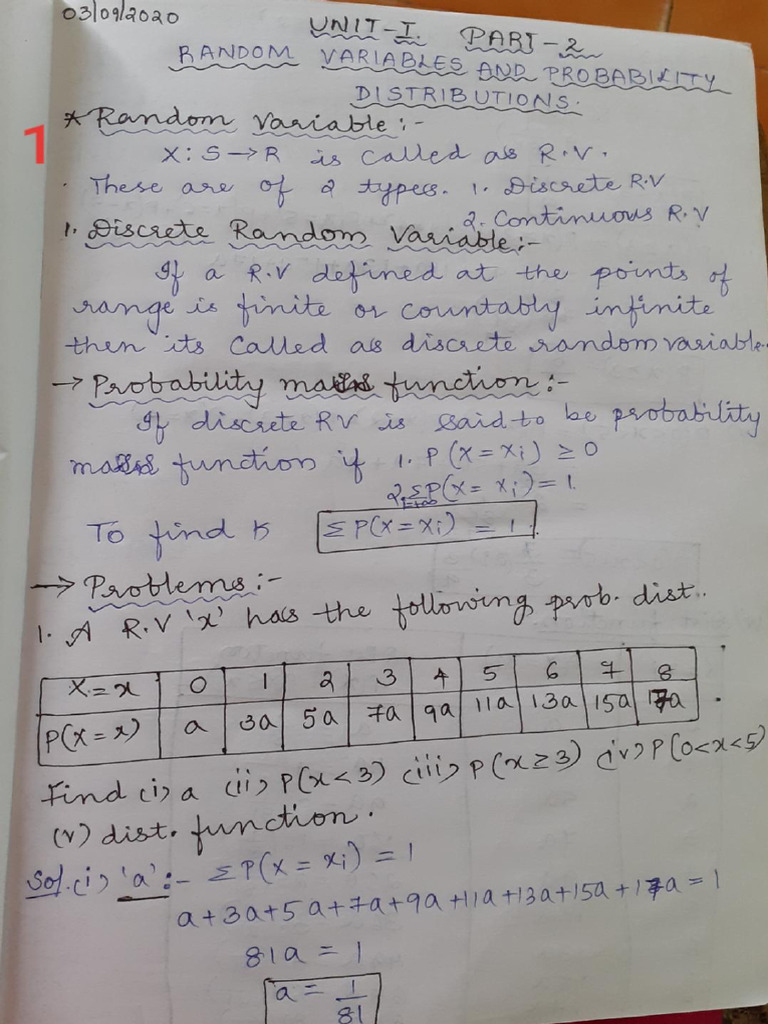 03/09/2020
UNIT-I. PART-2
RANDOM VARIABLES AND PROBABILITY
DISTRIBUTIONS.
1
* Random Variable:-
X: S→R is called as R.V.
These are of 2 types. 1. Discrete R.V
2. Continuous R.V
1. Discrete Random Variable:-
If a R.V defined at the points of
range is finite or countably infinite
then its called as discrete random variable.
→ Probability mass function:-
If discrete RV is said to be probability
mass function if 1. P(X=xi) ≥ 0
2. Σ P(X=xi) = 1.
To find k Σ P(X=xi) = 1.
→ Problems:-
1. A R.V 'x' has the following prob. dist..
X=x 0 1 2 3 4 5 6 7 8
P(X=x) a 3a 5a 7a 9a 11a 13a 15a 17a .
Find (i) a (ii) P(x<3) (iii) P(x≥3) (iv) P(0<x<5)
(v) dist. function.
Sol. (i) 'a':- Σ P(X=xi) = 1
a+3a+5a+7a+9a+11a+13a+15a+17a = 1
81a = 1
a = 1/81